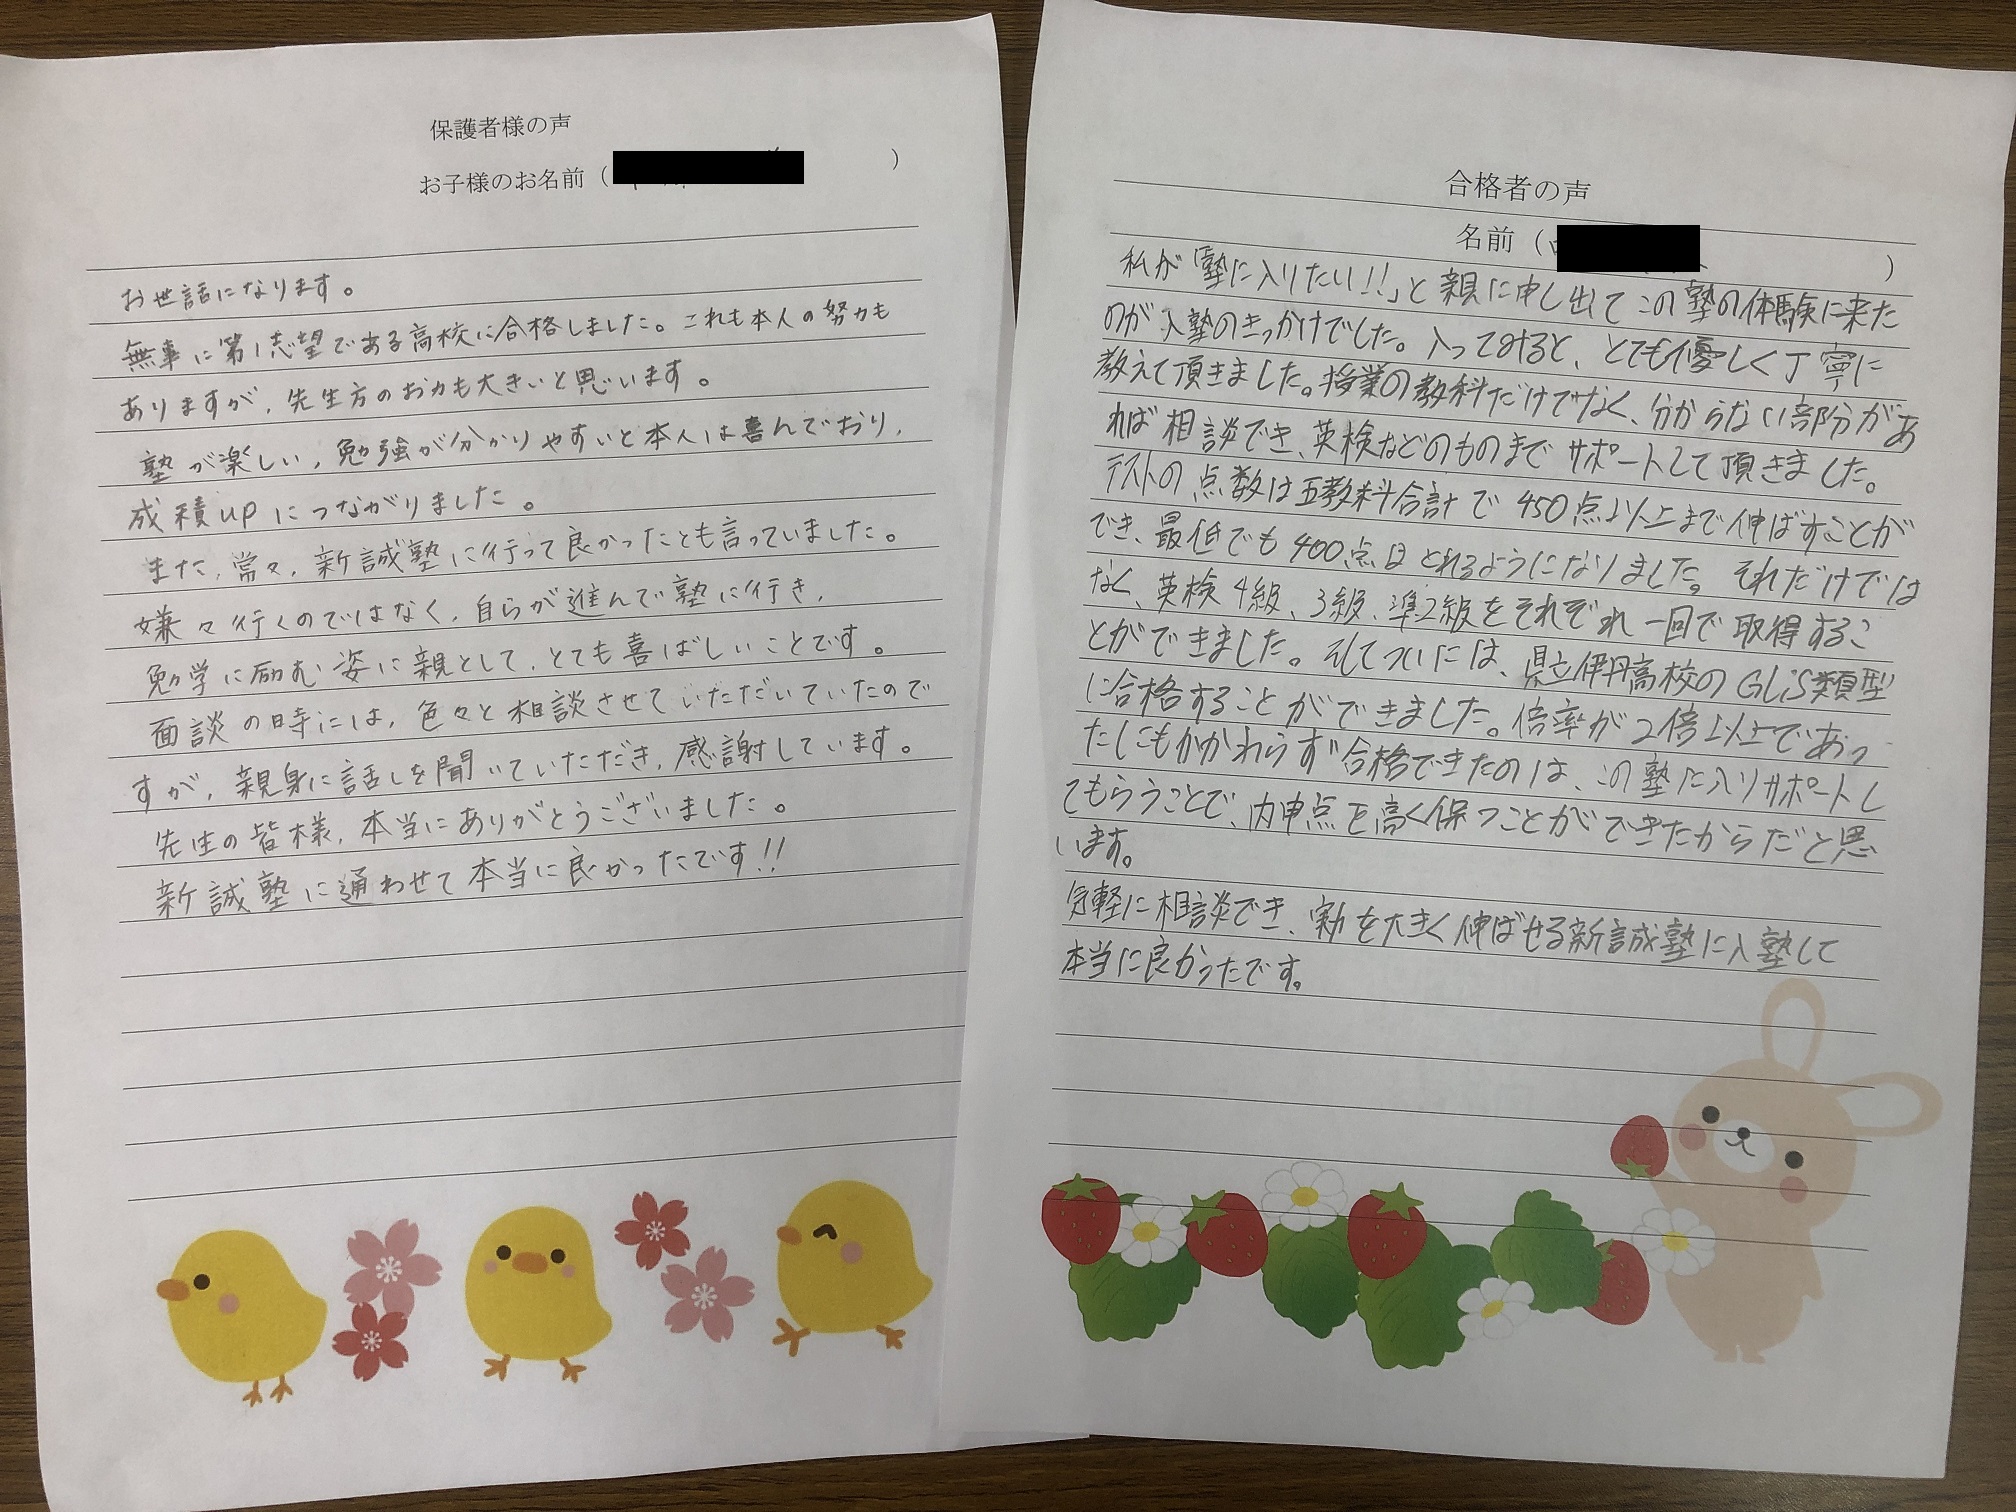 保護者様の声
お子様のお名前（　　　）
お世話になります。
無事に第1志望である高校に合格しました。これも本人の努力も
ありますが、先生方のお力も大きいと思います。
塾が楽しい、勉強が分かりやすいと本人は喜んでおり、
成積upにつながりました。
また、常々、新誠塾に行って良かったとも言っていました。
嫌々行くのではなく、自らが進んで塾に行き、
勉学に励む姿に親として、とても喜ばしいことです。
面談の時には、色々と相談させていただいていたので
すが、親身に話しを聞いていただき、感謝しています。
先生の皆様、本当にありがとうございました。
新誠塾に通わせて本当に良かったです!!
合格者の声
名前（　　　）
私が「塾に入りたい!!」と親に申し出てこの塾の体験に来た
のが入塾のきっかけでした。入ってみると、とても優しく丁寧に
教えて頂きました。授業の教科だけでなく、分からない部分があ
れば相談でき、英検などのものまでサポートして頂きました。
テストの点数は五教科合計で450点以上まで伸ばすことが
でき、最低でも400点はとれるようになりました。それだけでは
なく、英検4級、3級、準2級をそれぞれ一回で取得するこ
とができました。そしてついには、県立伊丹高校のGLiS類型
に合格することができました。倍率が2倍以上であっ
たにもかかわらず合格できたのは、この塾に入りサポートし
てもらうことで、内申点を高く保つことができたからだと思
います。
気軽に相談でき、実力を大きく伸ばせる新誠塾に入塾して
本当に良かったです。